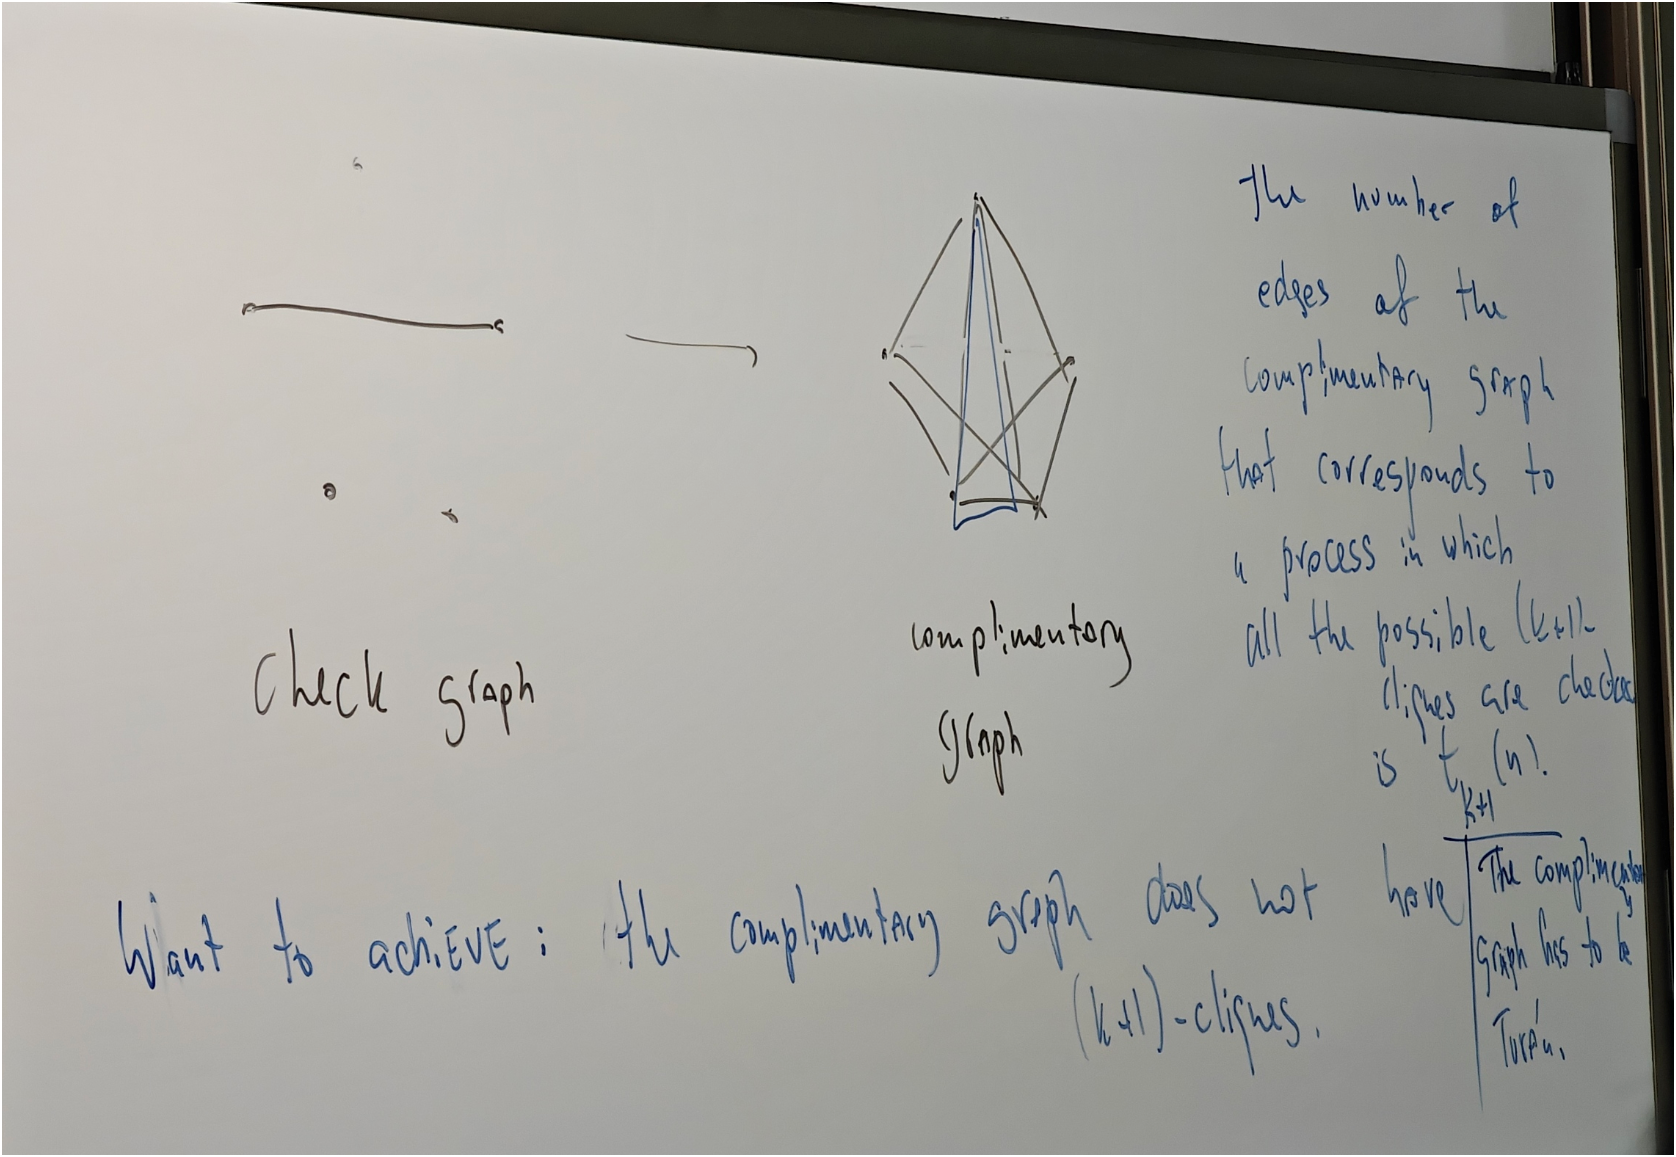 The number of
edges of the
complimentary graph
that corresponds to
a process in which
all the possible (k+1)-
cliques are checked
is t_{k+1}(n).
Check graph
complimentary
graph
Want to achieve: the complimentary graph does not have
(k+1)-cliques.
The complimentary
graph has to be
Turán.